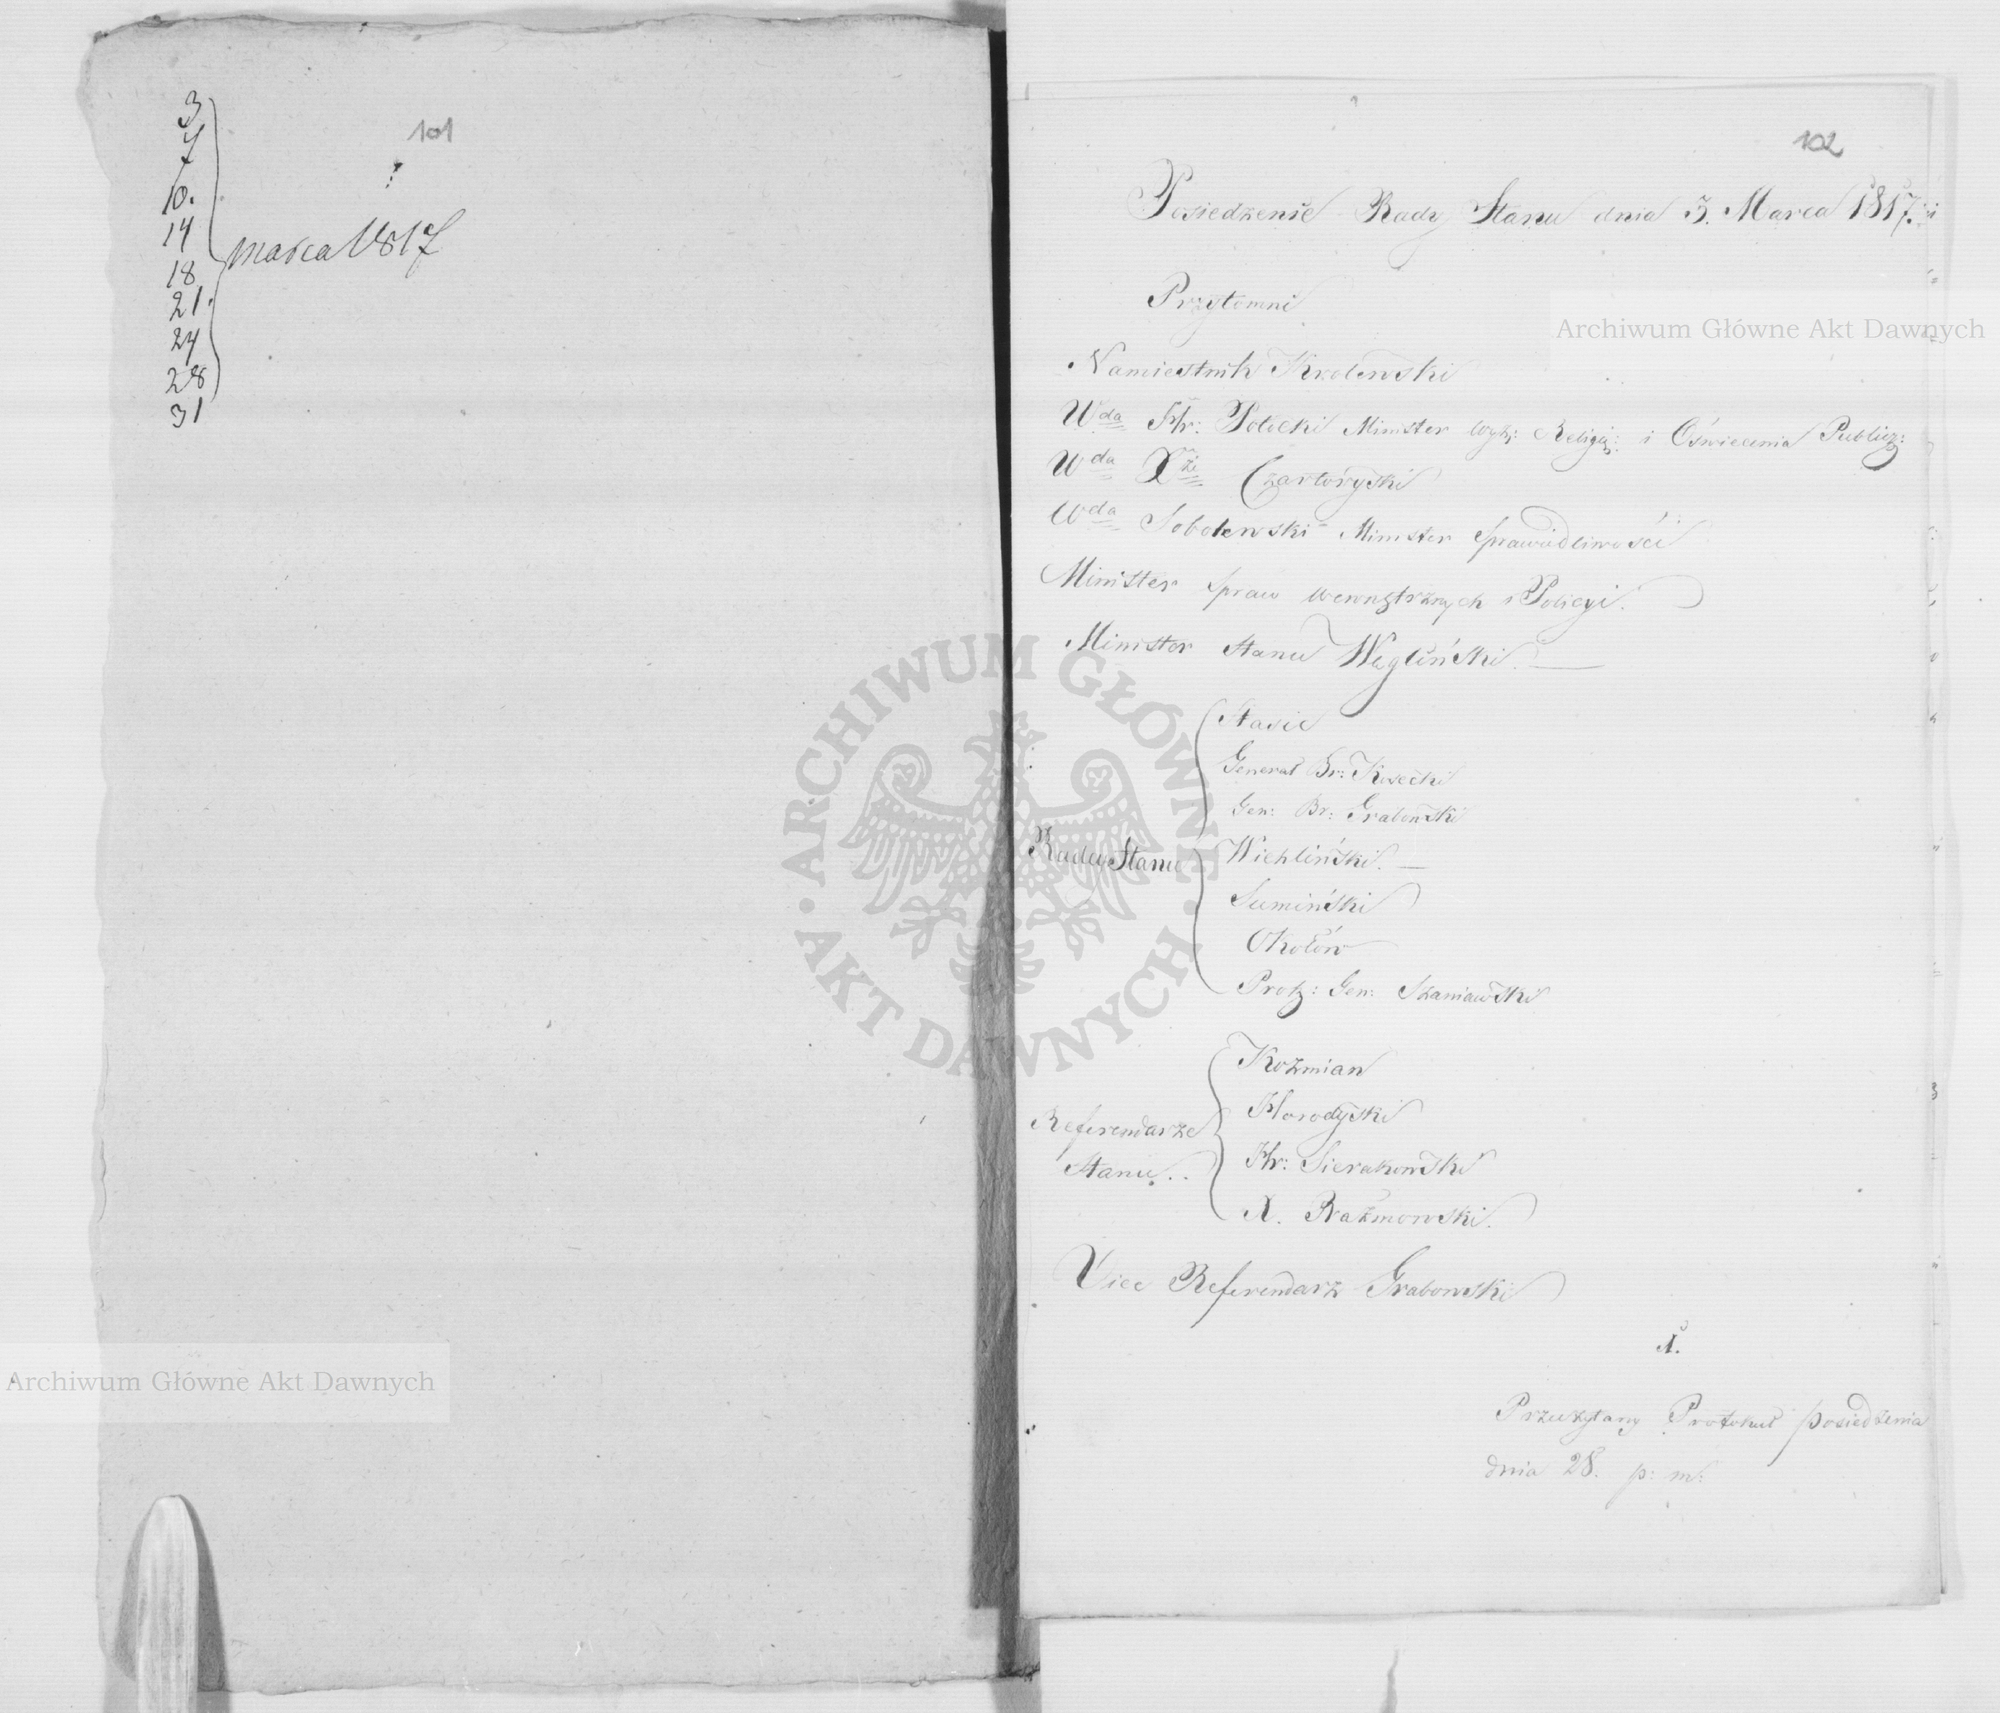 101
3
7
10.
14
18
21.
24
28
31
marca 1817
102
Posiedzenie Rady Stanu dnia 3. Marca 1817.
Przytomni
Namiestnik Krolewski
Wda Hr: Potocki Minister Wyz: Religij: i Oświecenia Publicz:
Wda Xże Czartoryski
Wda Sobolewski Minister Sprawiedliwości
Minister Spraw Wewnętrznych i Policyi.
Minister Stanu Węgliński.
Radcy Stanu
Stasic
Generał Br: Kosecki
Gen: Br: Grabowski
Wichliński.
Sumiński
Okołów
Prok: Gen: Szaniawski
Referendarze
Stanu..
Kozmian
Horodyski
Hr: Sierakowski
X. Prażmowski.
Vice Referendarz Grabowski
1.
Przeczytany Protokuł posiedzenia
dnia 28. p: m:
Archiwum Główne Akt Dawnych
Archiwum Główne Akt Dawnych
ARCHIWUM GŁÓWNE · AKT DAWNYCH ·